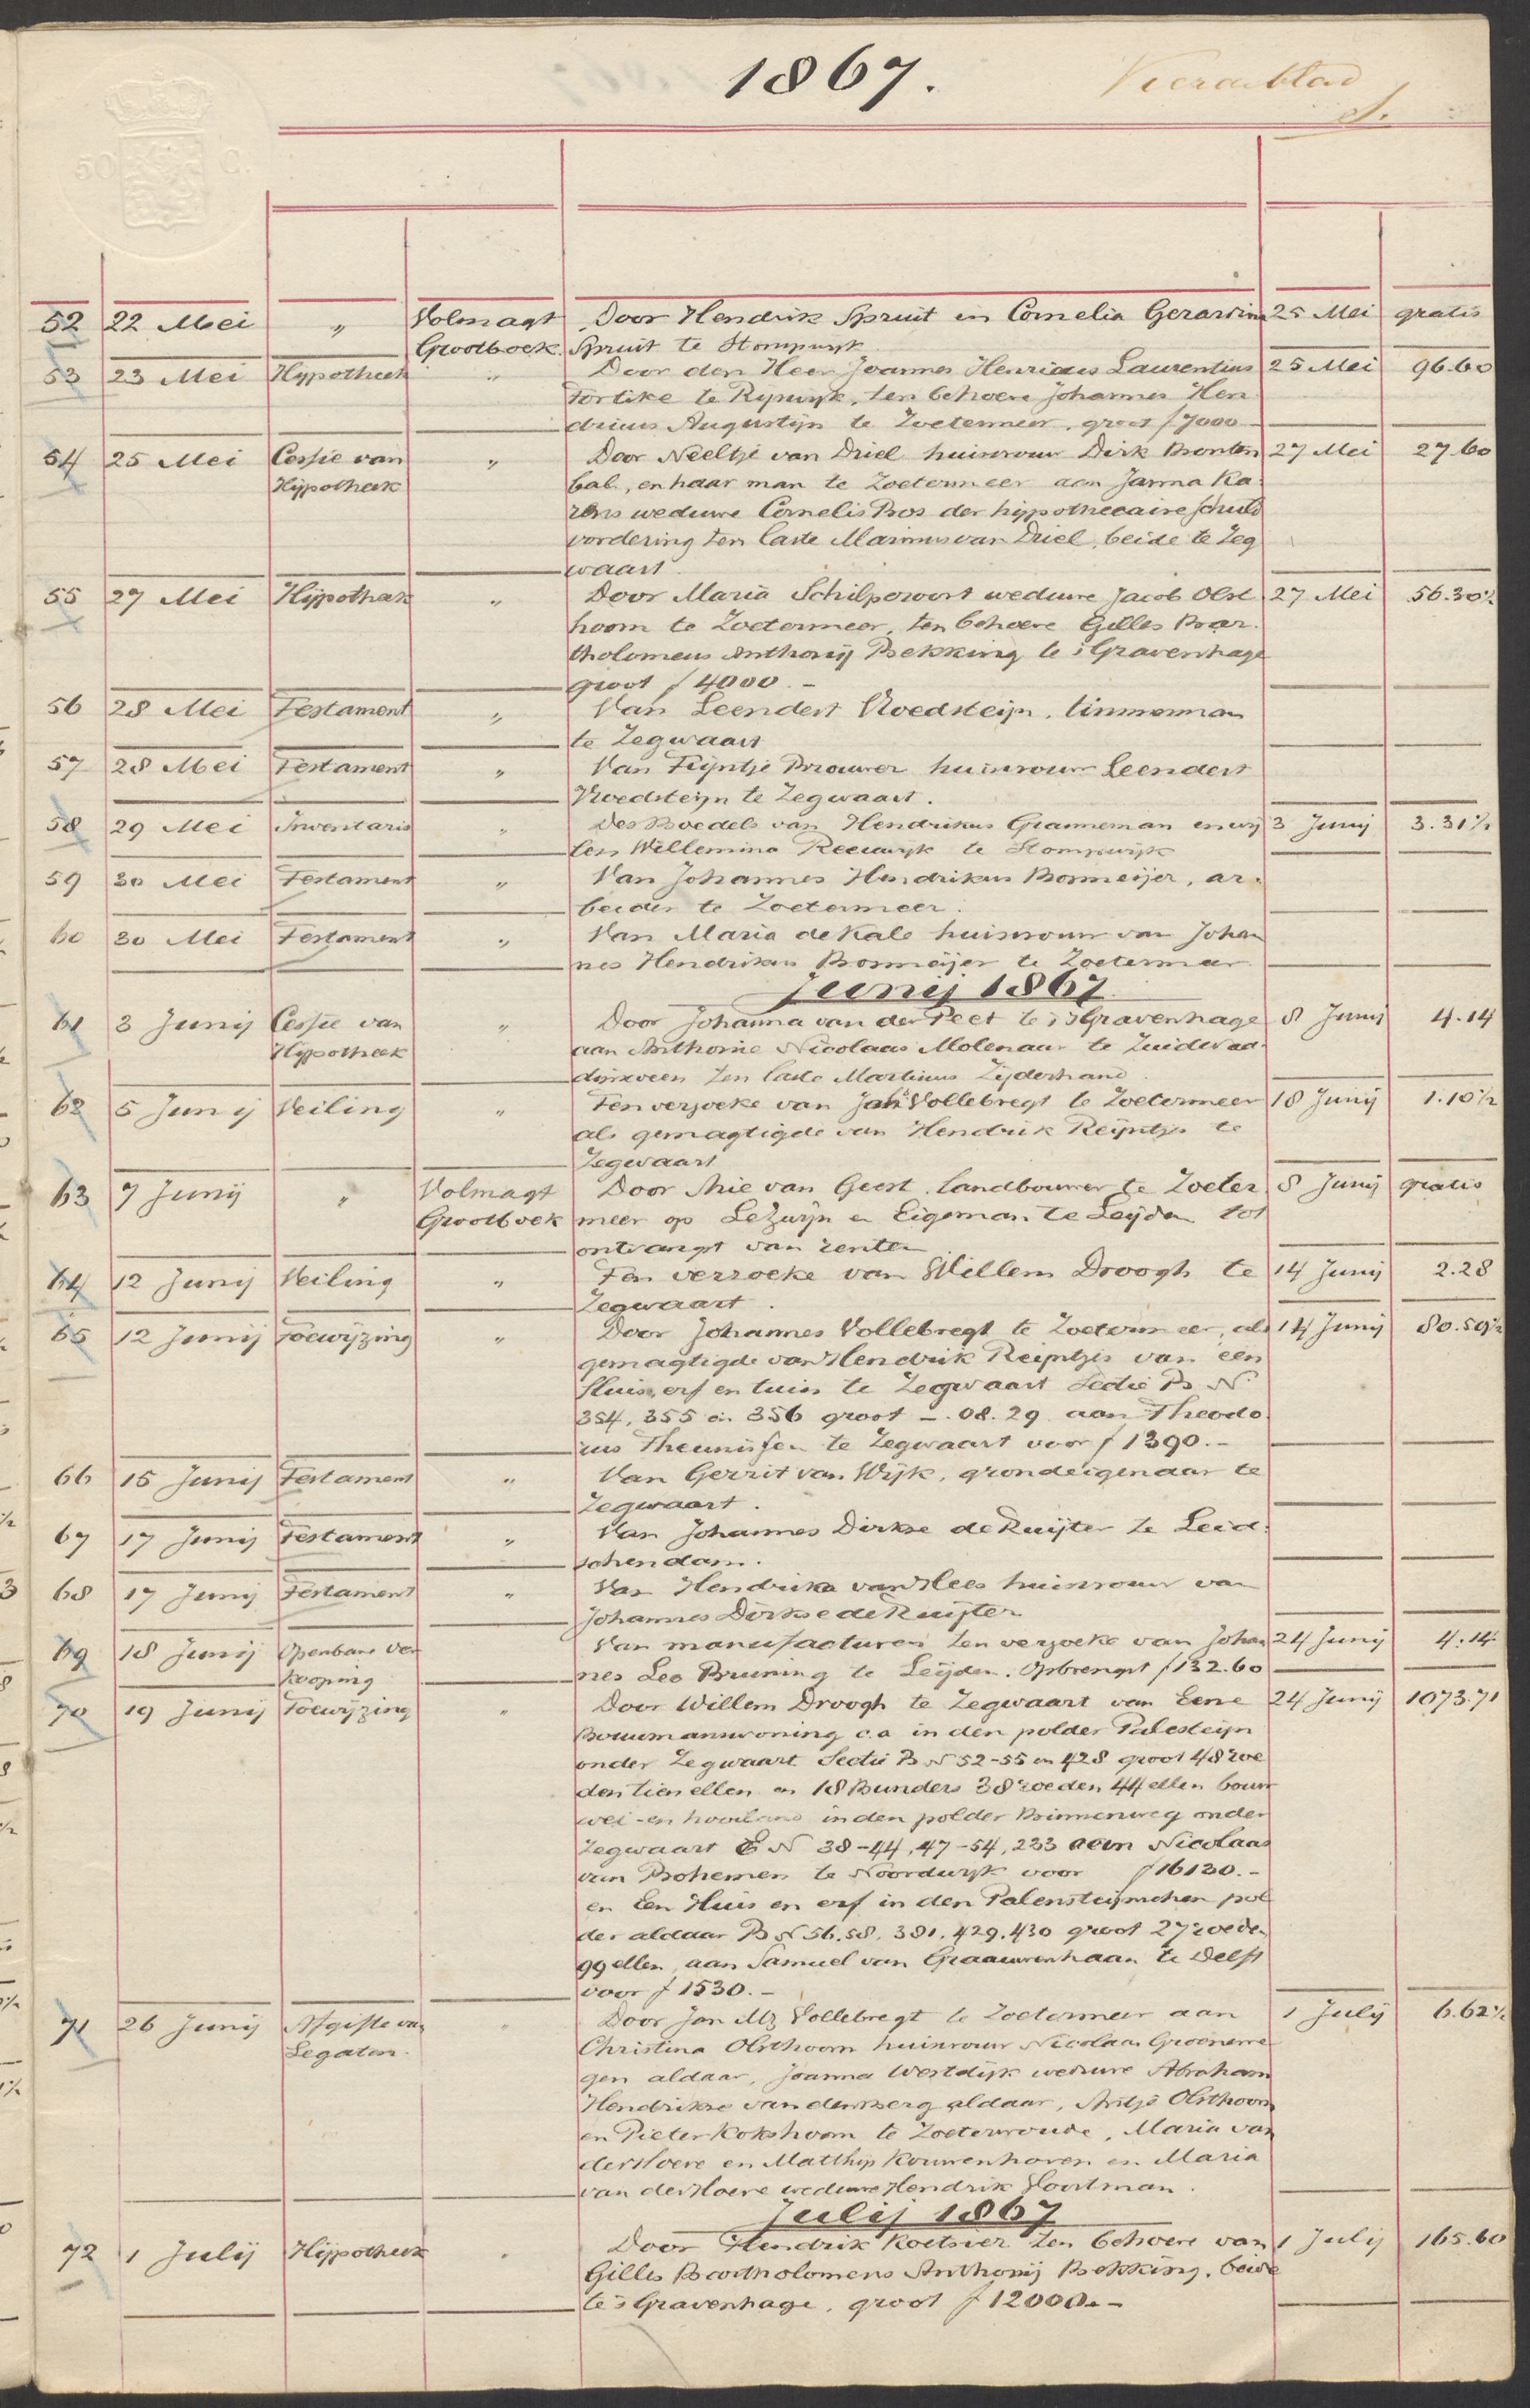 1867.
50 C.
52 22 Mei „ Volmagt Door Hendrik Spruit en Cornelia Gerardina 25 Mei gratis
Grootboek. Spruit te Stompwijk
53 23 Mei Hypotheek „ Door den Heer Joannes Henricus Laurentius 25 Mei 96.60
te Rijswijk, ten behoeve Johannes Hen
dricus Augustijn te Zoetermeer, groot f 7000
54 25 Mei Cessie van „ Door Neeltje van Driel huisvrouw Dirk Bonten 27 Mei 27.60
Hypotheek bal, en haar man te Zoetermeer aan Janna Ka
rens weduwe Cornelis Bos der hypothecaire schuld
vordering ten laste Marinus van Driel, beide te Zeg
waart
55 27 Mei Hypotheek „ Door Maria Schilperoort weduwe Jacob Olst 27 Mei 56.30½
hoorn te Zoetermeer, ten behoeve Gilles Bar
tholomeus Anthonij Bekking te 's Gravenhage
groot f 4000.-
56 28 Mei Testament „ Van Leendert Vroedsteijn, timmerman
te Zegwaart
57 28 Mei Testament „ Van Fijntje Brouwer huisvrouw Leendert
Vroedsteijn te Zegwaart.
58 29 Mei Inventaris „ des Boedels van Hendrikus Granneman en wij 3 Junij 3.31½
len Willemina Reeuwijk te Stompwijk
59 30 Mei Testament „ Van Johannes Hendrikus Bonmeijer, ar
beider te Zoetermeer.
60 30 Mei Testament „ Van Maria de Kale huisvrouw van Johan
nes Hendrikus Bonmeijer te Zoetermeer
Junij 1867
61 3 Junij Cessie van „ Door Johanna van der Peet te 's Gravenhage 8 Junij 4.14
Hypotheek aan Anthonie Nicolaas Molenaar te Zuidwad
dinxveen ten laste Martinus Zijderhand
62 5 Junij Veiling „ Ten verzoeke van Jan Vollebregt te Zoetermeer 18 Junij 1.10½
als gemagtigde van Hendrik Reijntjes te
Zegwaart
63 7 Junij „ Volmagt Door Arie van Geest, landbouwer te Zoeter 8 Junij gratis
Grootboek meer op Lezwijn en Eigeman te Leijden tot
ontvangst van renten
64 12 Junij Veiling „ Ten verzoeke van Willem Droogh te 14 Junij 2.28
Zegwaart.
65 12 Junij Toewijzing „ Door Johannes Vollebregt te Zoetermeer, als 14 Junij 80.59½
gemagtigde van Hendrik Reijntjes van een
Huis, erf en tuin te Zegwaart Sectie B N
354, 355 en 356 groot -.08.29 aan Theodo
rus Theunissen te Zegwaart voor f 1390.-
66 15 Junij Testament „ Van Gerrit van Wijk, grondeigenaar te
Zegwaart.
67 17 Junij Testament „ Van Johannes Dirkse de Ruijter te Leid
schendam.
68 17 Junij Testament „ Van Hendrika van Hees huisvrouw van
Johannes Dirkse de Ruijter
69 18 Junij Openbare Ver Van manufacturen ten verzoeke van Johan 24 Junij 4.14
kooping nes Leo Bruning te Leijden. Opbrengst f 132.60
70 19 Junij Toewijzing „ Door Willem Droogh te Zegwaart van Eene 24 Junij 1073.71
Bouwmanswoning c.a in den polder Palesteijn
onder Zegwaart Sectie B N 52-55 en 428 groot 48 roe
den tien ellen en 18 Bunders 38 roeden 44 ellen bouw
wei- en hooiland in den polder Binnenweg onder
Zegwaart E N 38-44, 47-54, 233 aan Nicolaas
van Bohemen te Noordwijk voor f 16130.-
en Een Huis en erf in den Palensteijnschen pol
der aldaar B N 56.58. 381. 429. 430 groot 27 roeden
99 ellen, aan Samuel van Graauwenhaan te Delft
voor f 1530.-
71 26 Junij Afgifte van „ Door Jan Mz Vollebregt te Zoetermeer aan 1 Julij 6.62½
Legaten. Christina Olsthoorn huisvrouw Nicolaas Groenewe
gen aldaar, Joanna Westdijk weduwe Abraham
Hendrikse van den Berg aldaar, Antje Olsthoorn
en Pieter Kokshoorn te Zoeterwoude, Maria van
der Hoeve en Matthijs Kouwenhoven en Maria
van der Hoeve weduwe Hendrik Voortman.
Julij 1867
72 1 Julij Hypotheek „ Door Hendrik Koetsier ten behoeve van 1 Julij 165.60
Gilles Bartholomeus Anthonij Bekking, beide
te 's Gravenhage, groot f 12000.-